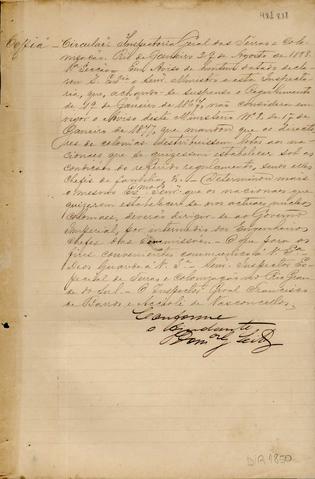 Copia - Circular. Inspectoria Geral das Terras e Colo-
nisação. Rio de Janeiro 27 de Agosto de 1888.
Secção Em Aviso de hontem datado decla-
rou S. Ex.ª o Senr. Ministro a esta Inspecto-
ria, que, achando-se suspenso o Regulamento
de 19 de Janeiro de 1867, não considera em
vigor o Aviso deste Ministerio Nº 2 de 17 de
Janeiro de 1877, que mandou que os directo-
res de colonias distribuissem lotes aos na-
cionaes que se quizessem estabelecer sob as
condições do referido regulamento, sendo elles
chefes de familia. Determinou mais
o mesmo Ex.mo Senr. que os nacionaes que
quizerem estabelecer-se nos actuaes nucleos
coloniaes, deverão dirigir-se ao Governo
Imperial, por intermedio dos Engenheiros
chefes das Commissões. O que para os
fins convenientes communico a V. S.ª
Deos Guarde a V. S.ª Senr. Inspector Es-
pecial de Terras e Colonisação no Rio Gran-
de do Sul - O Inspector Geral Francisco
de Barros e Accioli de Vasconcellos.
Conforme
O Ajudante
DIR 1850